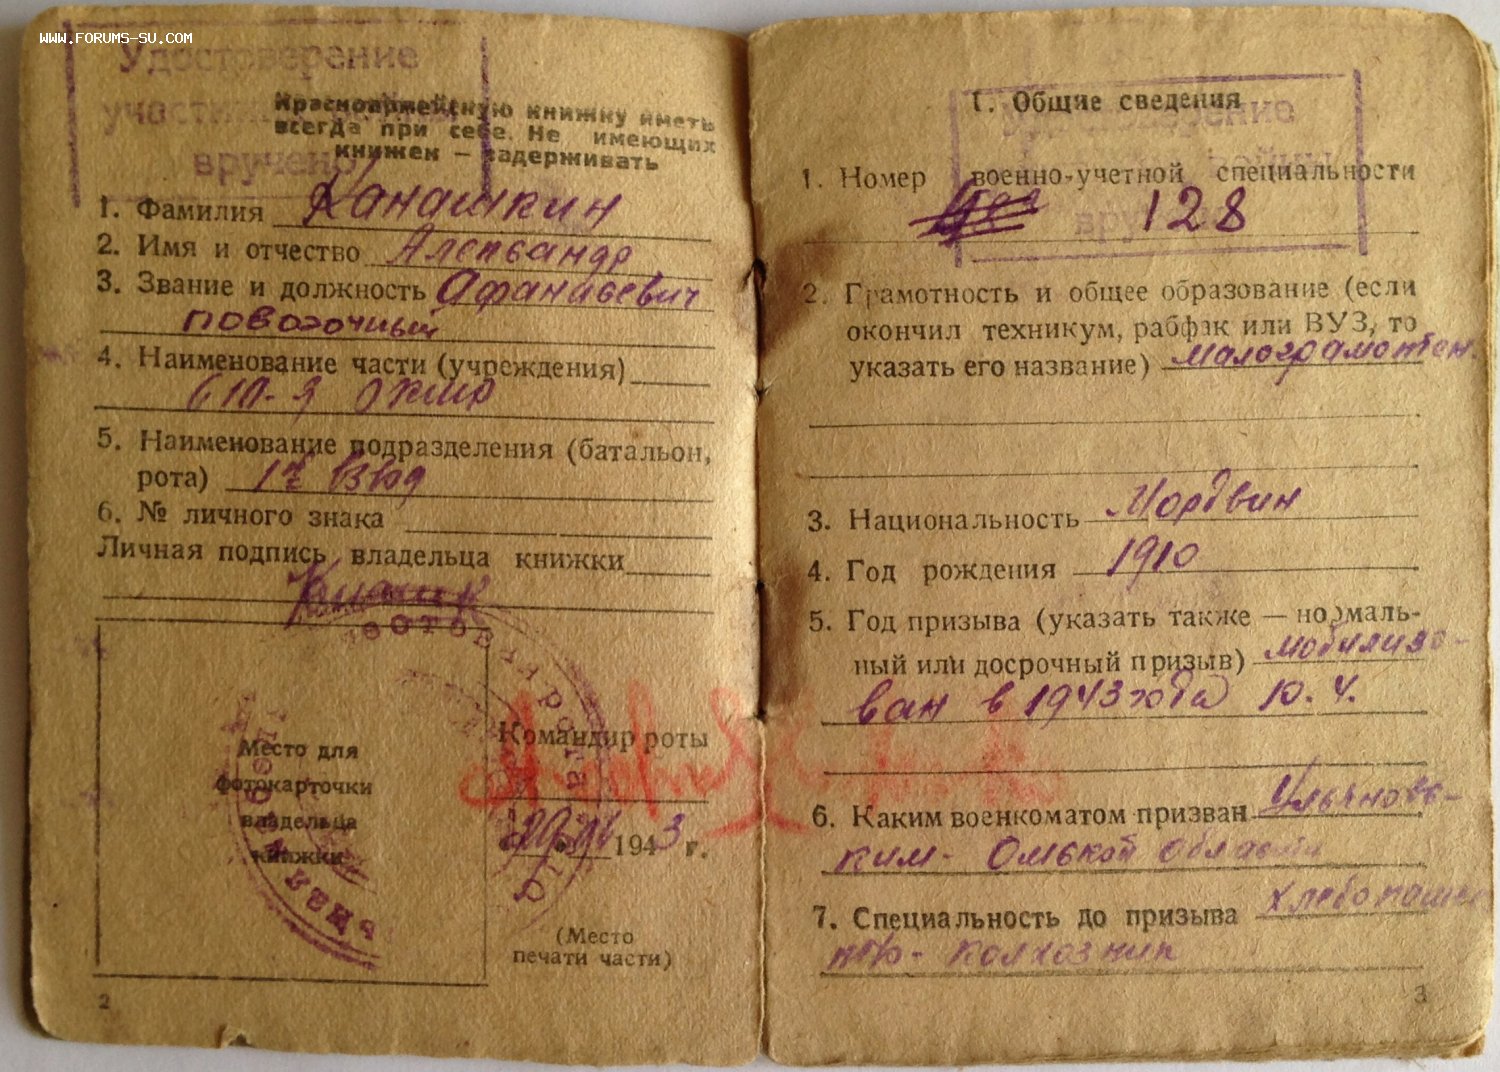 WWW.FORUMS-SU.COM
Удостоверение
участника
вручено
Красноармейскую книжку иметь
всегда при себе. Не имеющих
книжек — задерживать
1. Фамилия Канашкин
2. Имя и отчество Александр
3. Звание и должность Афанасевич
повозочный
4. Наименование части (учреждения)
610-я
5. Наименование подразделения (батальон,
рота) 1й взвод
6. № личного знака
Личная подпись владельца книжки
Место для
фотокарточки
владельца
книжки
Командир роты
1943 г.
(Место
печати части)
2
Удостоверение
войны
вручено
I. Общие сведения
1. Номер военно-учетной специальности
128
2. Грамотность и общее образование (если
окончил техникум, рабфак или ВУЗ, то
указать его название) малограмотен.
3. Национальность Мордвин
4. Год рождения 1910
5. Год призыва (указать также — нормаль-
ный или досрочный призыв) мобилизо-
ван в 1943 года
6. Каким военкоматом призван Ульяновс-
ким - Омской области
7. Специальность до призыва хлебопашец
колхозник
3